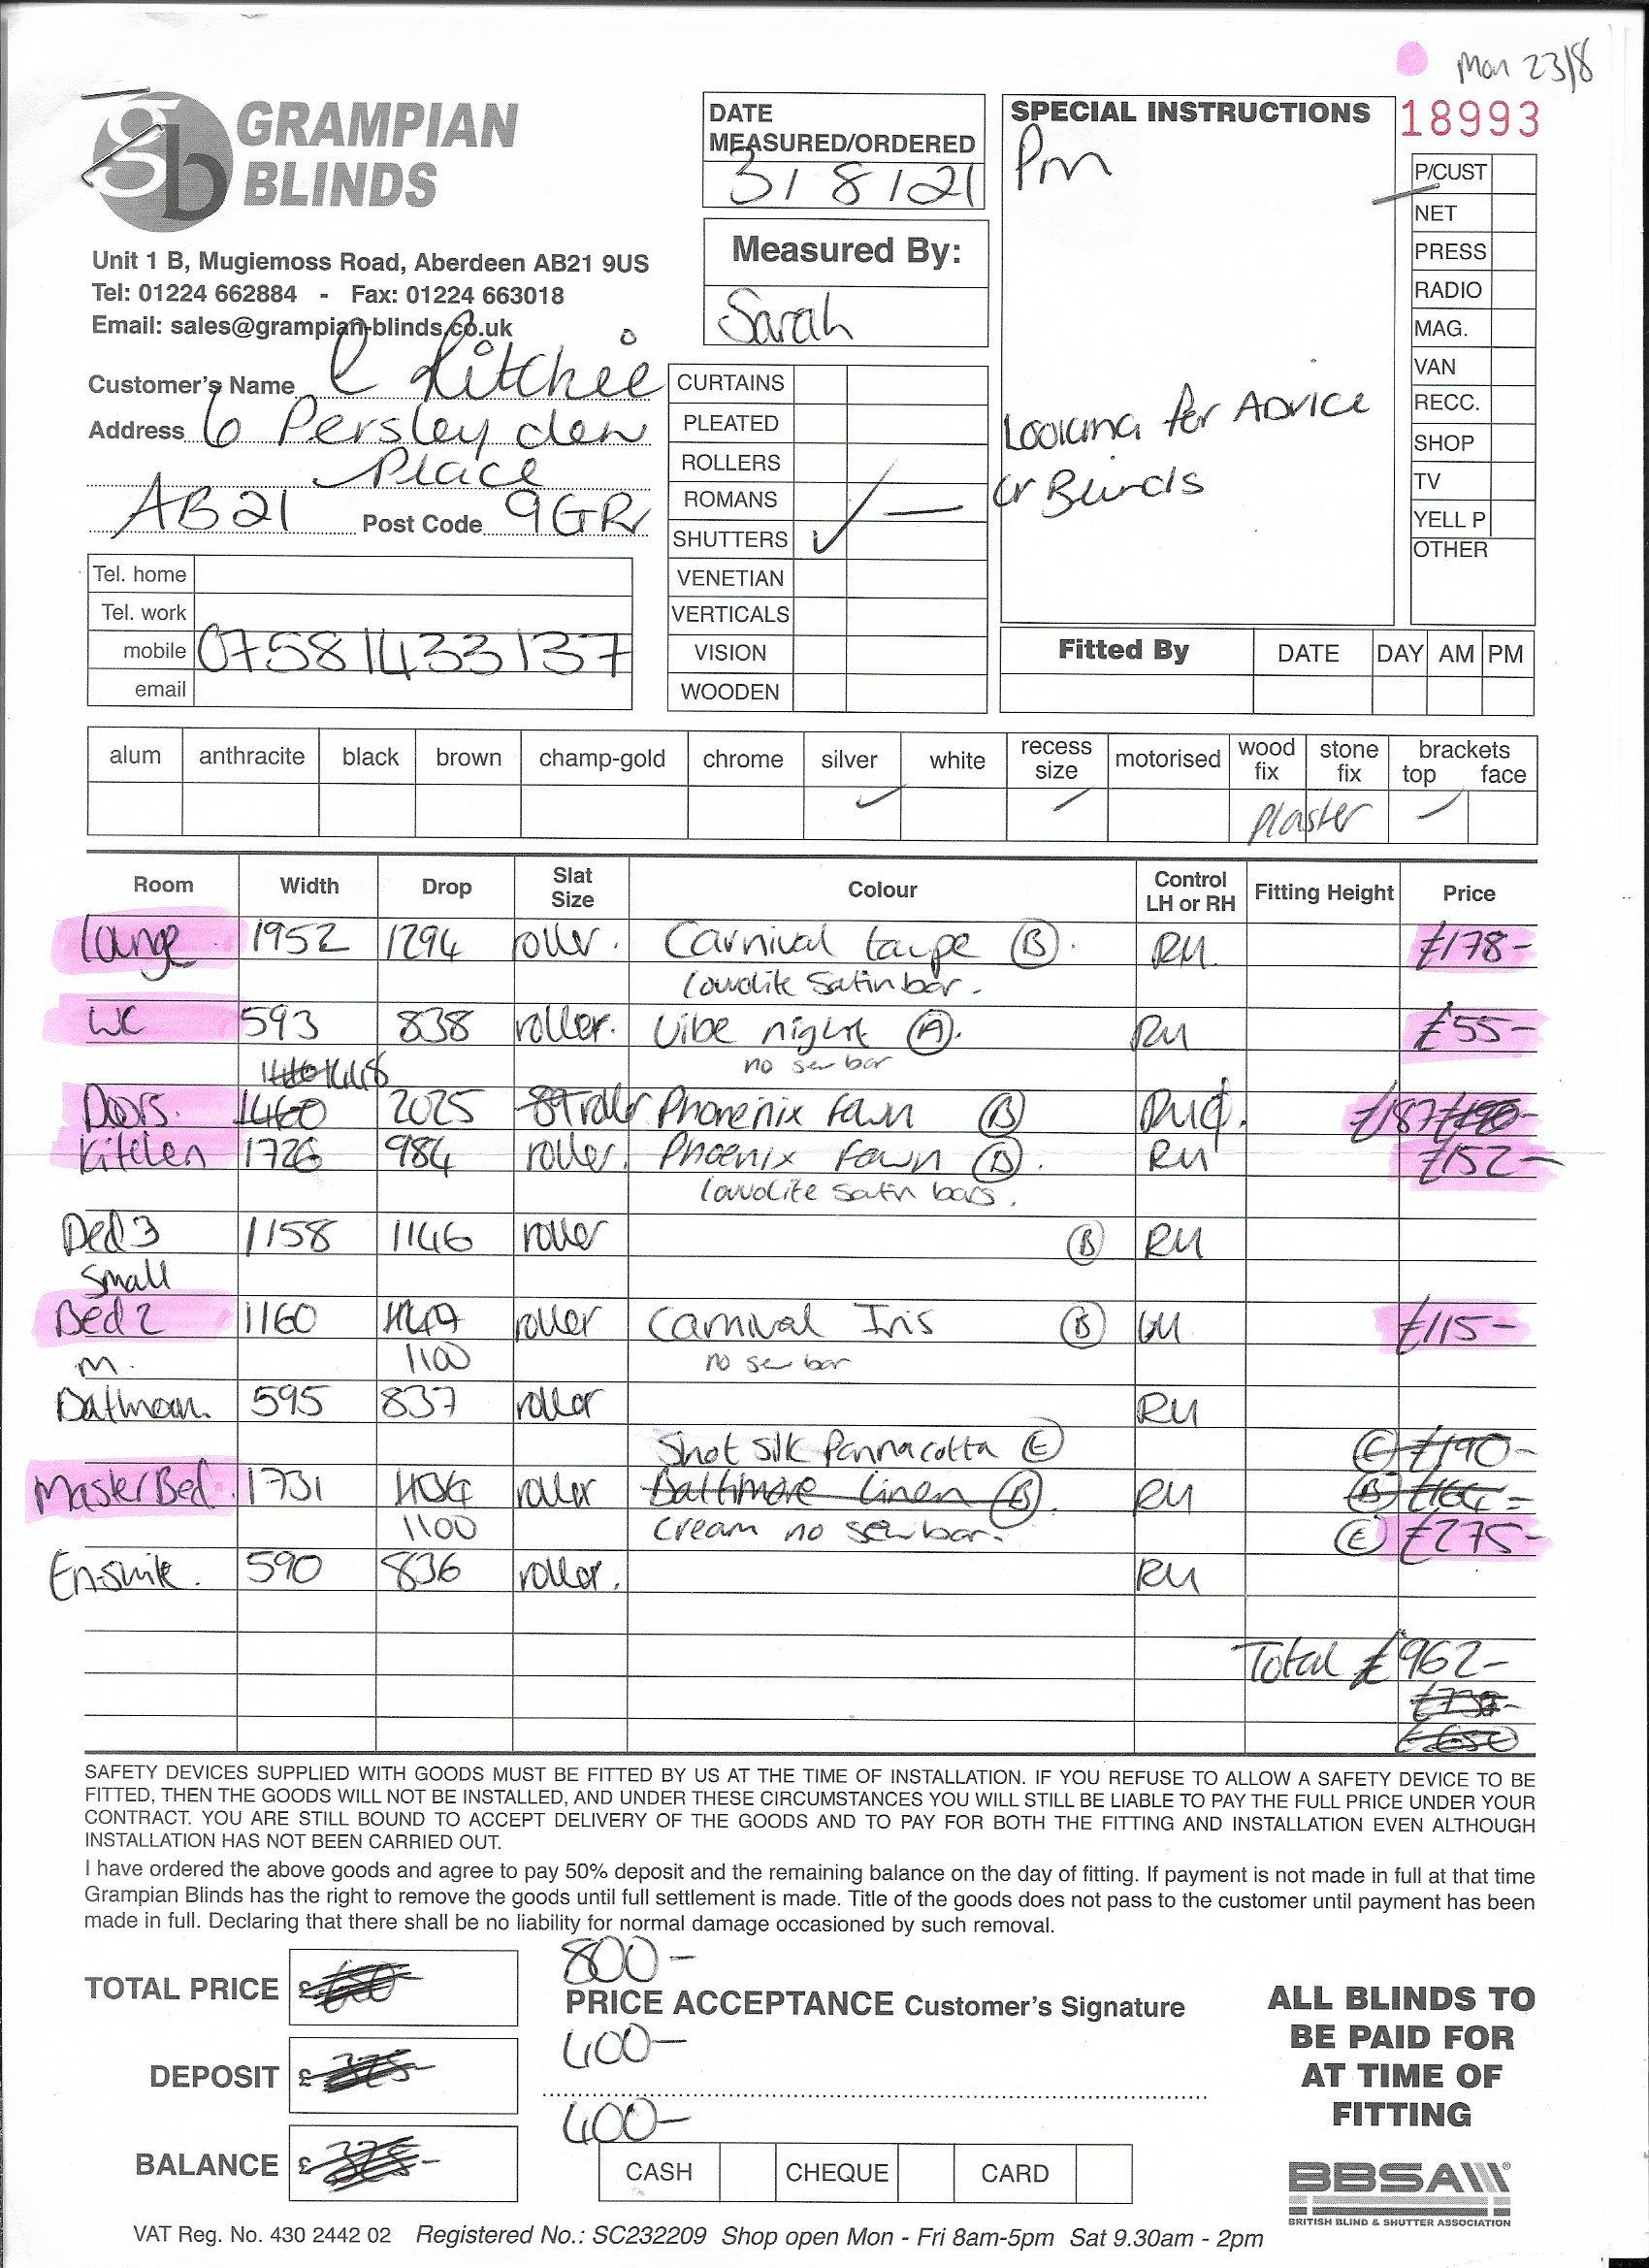 Mon 23/8
GRAMPIAN
BLINDS
Unit 1 B, Mugiemoss Road, Aberdeen AB21 9US
Tel: 01224 662884 - Fax: 01224 663018
Email: sales@grampian-blinds.co.uk
Customer's Name C Ritchie
Address 6 Persley den
Place
AB21 Post Code 9GR
Tel. home
Tel. work
mobile 07581433137
email
DATE
MEASURED/ORDERED
3/8/21
Measured By:
Sarah
CURTAINS
PLEATED
ROLLERS
ROMANS
SHUTTERS ✓
VENETIAN
VERTICALS
VISION
WOODEN
SPECIAL INSTRUCTIONS
Pm
Looking for Advice
or Blinds
18993
P/CUST
NET
PRESS
RADIO
MAG.
VAN
RECC.
SHOP
TV
YELL P
OTHER
Fitted By DATE DAY AM PM
alum anthracite black brown champ-gold chrome silver white recess size motorised wood fix stone fix brackets top face
plaster
Room Width Drop Slat Size Colour Control LH or RH Fitting Height Price
Lounge 1952 1294 roller. Carnival taupe (B). RH. £178-
louvolite Satin bar.
WC 593 838 roller. Vibe night (A). RH £55-
no sew bar
1448
Doors 1460 2025 roller Phoenix fawn (B) RH £187
Kitchen 1726 984 roller. Phoenix fawn (B). RH £152-
louvolite satin bars.
Bed 3 1158 1146 roller (B) RH
Small
Bed 2 1160 1149 roller Carnival Iris (B) LH £115-
m. 1100 no sew bar
Bathroom. 595 837 roller RH
Shot Silk Pannacotta (E) (C) £190-
Master Bed. 1731 1134 roller Baltimore linen (B). RH (B) £164-
1100 cream no sew bar. (E) £275-
En-suite. 590 836 roller. RH
Total £962-
£650
SAFETY DEVICES SUPPLIED WITH GOODS MUST BE FITTED BY US AT THE TIME OF INSTALLATION. IF YOU REFUSE TO ALLOW A SAFETY DEVICE TO BE
FITTED, THEN THE GOODS WILL NOT BE INSTALLED, AND UNDER THESE CIRCUMSTANCES YOU WILL STILL BE LIABLE TO PAY THE FULL PRICE UNDER YOUR
CONTRACT. YOU ARE STILL BOUND TO ACCEPT DELIVERY OF THE GOODS AND TO PAY FOR BOTH THE FITTING AND INSTALLATION EVEN ALTHOUGH
INSTALLATION HAS NOT BEEN CARRIED OUT.
I have ordered the above goods and agree to pay 50% deposit and the remaining balance on the day of fitting. If payment is not made in full at that time
Grampian Blinds has the right to remove the goods until full settlement is made. Title of the goods does not pass to the customer until payment has been
made in full. Declaring that there shall be no liability for normal damage occasioned by such removal.
800-
TOTAL PRICE £650
PRICE ACCEPTANCE Customer's Signature
400-
DEPOSIT £325-
400-
BALANCE £325-
CASH CHEQUE CARD
ALL BLINDS TO
BE PAID FOR
AT TIME OF
FITTING
BBSA
BRITISH BLIND & SHUTTER ASSOCIATION
VAT Reg. No. 430 2442 02 Registered No.: SC232209 Shop open Mon - Fri 8am-5pm Sat 9.30am - 2pm